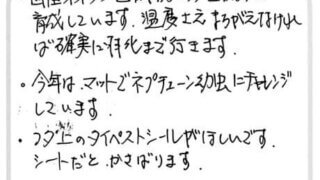 育成しています。温度さえまちがえなけれ
ば確実に羽化まで行きます。
・今年は、マットでネプチューン幼虫にチャレンジ
しています。
・フタ上のタイベストシールがほしいです。
シートだと、かさばります。